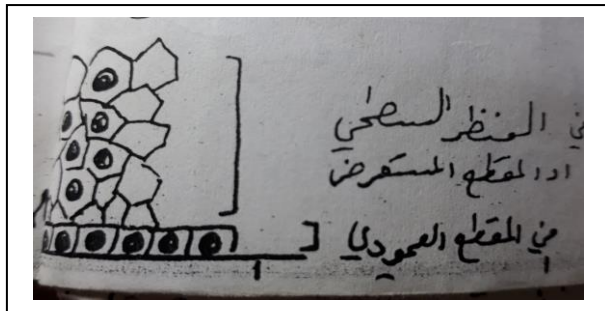 في المنظر السطحي
او المقطع المستعرض
في المقطع العمودي